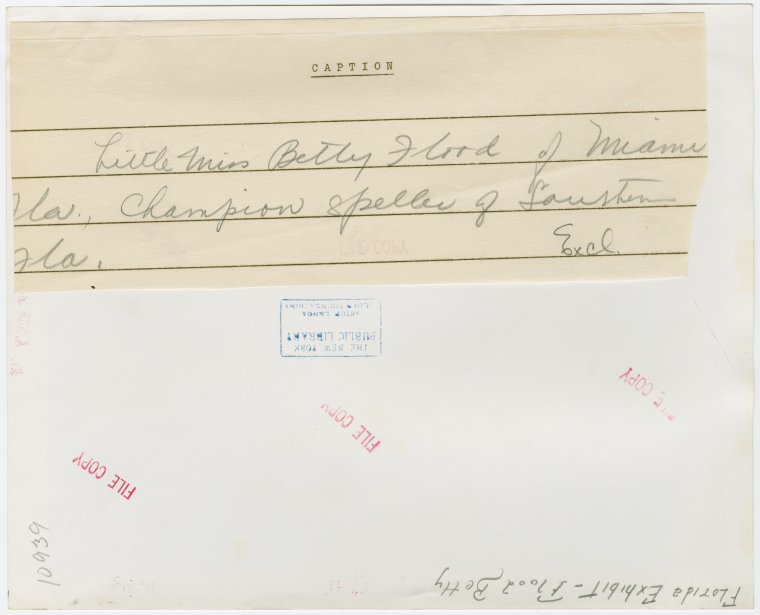 CAPTION
Little Miss Betty Flood of Miami
Fla., Champion Speller of
Fla.
Excl.
THE NEW YORK
PUBLIC LIBRARY
ASTOR LENOX
TILDEN FOUNDATIONS
FILE COPY
FILE COPY
FILE COPY
10939
Florida Exhibit - Flood, Betty